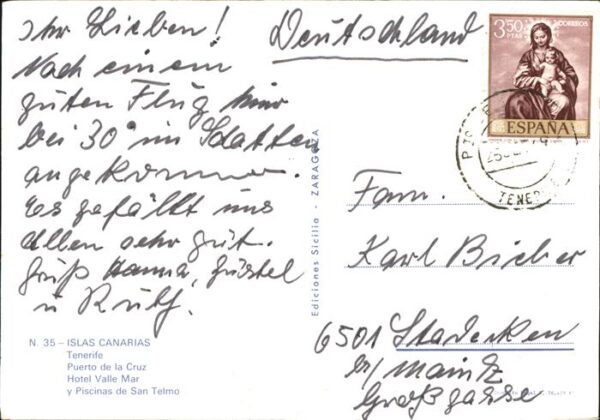 Ihr Lieben!
Nach einem
guten Flug hier
bei 30° im Schatten
angekommen.
Es gefällt uns
allen sehr gut.
Gruß Hanna, Gustel
u Ruth.
N. 35 - ISLAS CANARIAS
Tenerife
Puerto de la Cruz
Hotel Valle Mar
y Piscinas de San Telmo
Ediciones Sicilia - ZARAGOZA
Deutschland
3,50
PTAS
CORREOS
ESPAÑA
TENERIFE
Fam.
Karl Bicher
6501 Stadecken
b/ Mainz
Großgasse